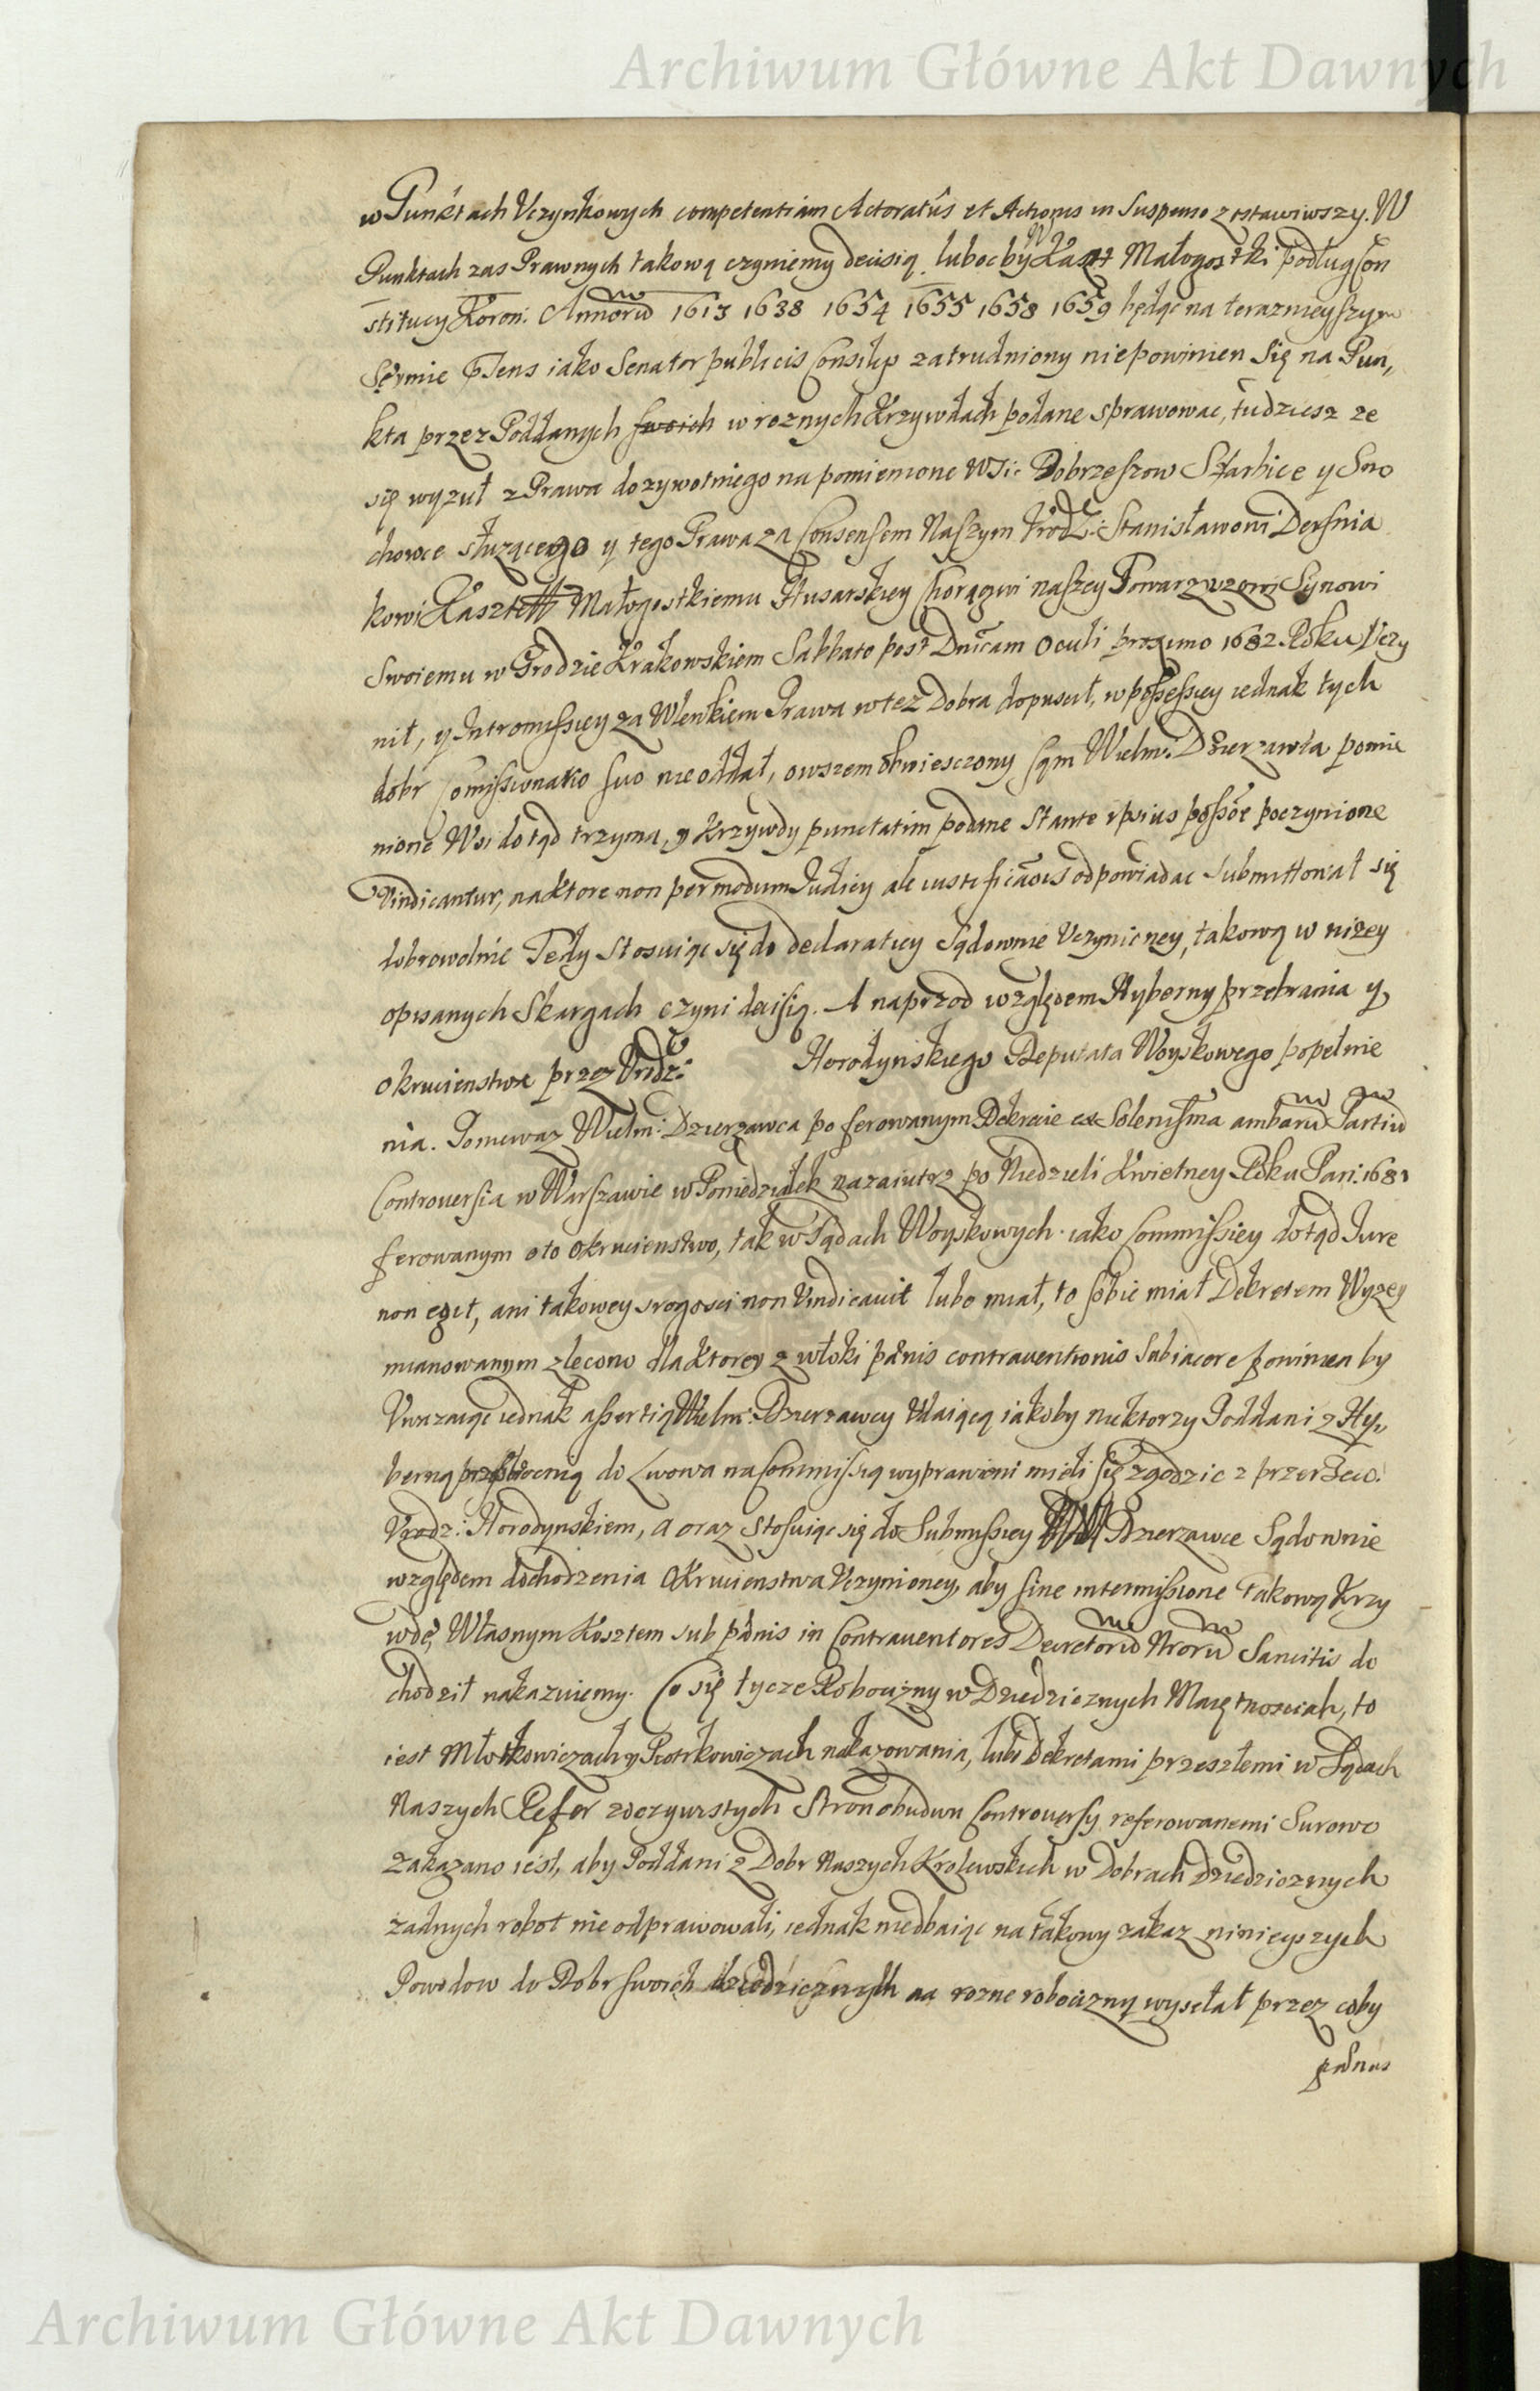 Archiwum Główne Akt Dawnych
w Punktach Uczynkowych competentiam Actoratûs et Actionis in Suspenso zostawiwszy. W
Punktach zas Prawnych takową czyniemy decisią. lubocby W Kaszt Małogostki podług Con
stitucy Koron: Annorũ 1613 1638 1654 1655 1658 1659 będąc na teraznieyszym
Seymie Pñens iako Senator publicis Consilys zatrudniony niepowinien się na Pun,
kta przez Poddanych w roznych Krzywdach podane sprawowac, tudziesz ze
się wyzuł z Prawa dozywotniego na pomienione Wsi: Dobrzeszow Szarbice y Sno
chowce słuzącego y tego Prawa za Consensem Naszym Urodz: Stanisławowi Dersnia
kowi Kasztell Małogostkiemu Husarskiey Chorągwi naszey Towarzyszowi Synowi
Swoiemu w Grodzie Krakowskiem Sabbato post Dnicam Oculi proximo 1682. Roku Uczy
nił, y Intromissiey za Wlenkiem Prawa w tez Dobra dopuscił, w possessiey iednak tych
dobr Comissionario suo nie oddał, owszem obwiesczony sąm Wielm: Dzierzawca pomie
nione Wsi dotąd trzyma, y Krzywdy punctatim podane Stante ipsius possõe poczynione
Vindicantur, na ktore non per modum Iudicij ale iustificãois odpowiadac Submittował się
dobrowolnie Tedy Stosuiąc się do declaraticy Sądownie Uczynioney, takową w nizey
opisanych Skargach czyni decisią. A naprzod względem Hyberny przebrania y
okrucienstwa przez Urodz: Horodynskiego Deputata Woyskowego popełnie
nia. Poniewaz Wielm: Dzierzawca po ferowanym Dekrecie ex Solenissima ambarũ Partiũ
Controuersia w Warszawie w Poniedziałek nazaiutrz po Niedzieli Kwietney Roku Pań: 1681
ferowanym o to Okrucienstwo, tak w Sądach Woyskowych iako Commissiey dotąd Iure
non egit, ani takowey srogosci non Vindicauit lubo miał, to sobie miał Dekretem Wyzey
mianowanym zlecono dla ktorey zwłoki pœnis contrauentionis Subiacere powinien by
Uwazaiąc iednak assertią Wielm: Dzierzawcy Udaiącą iakoby niektorzy Poddani z Hy,
berną do Lwowa na Commissią wyprawieni mieli się zgodzic z przerzeco:
Urodz: Horodynskiem, a oraz Stosuiąc się do Submissiey Dzierzawce Sądownie
względem dochodzenia Okrucienstwa Uczynioney, aby sine intermissione takową Krzy
wdę, Własnym Kosztem sub pœnis in Contrauentores Decretorũ Nrorũ Sancitis do
chodził nakazuiemy. Co się tycze Robocizny w Dziedzicznych Maiętnosciach, to
iest Młotkowiczach y Piotrkowiczach nakazowania, lubo Dekretami przeszłemi w Sądach
Naszych Refer z oczywistych Stron obudwu Controuersy referowanemi Surowo
zakazano iest, aby Poddani z Dobr Naszych Krolewskich w Dobrach dziedzicznych
zadnych robot nie odprawowali, iednak niedbaiąc na takowy zakaz ninieyszych
Powodow do Dobr swoich dziedzicznych na rozne robocizny wysełał przez coby
pœnas
Archiwum Główne Akt Dawnych